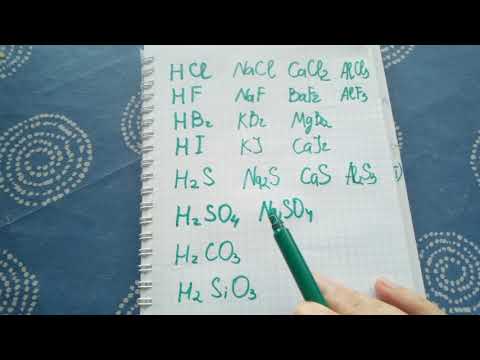 HCl NaCl CaCl2 AlCl3
HF NaF BaF2 AlF3
HBr KBr MgBr2
HI KJ CaJ2
H2S Na2S CaS Al2S3
H2SO4 Na2SO4
H2CO3
H2SiO3